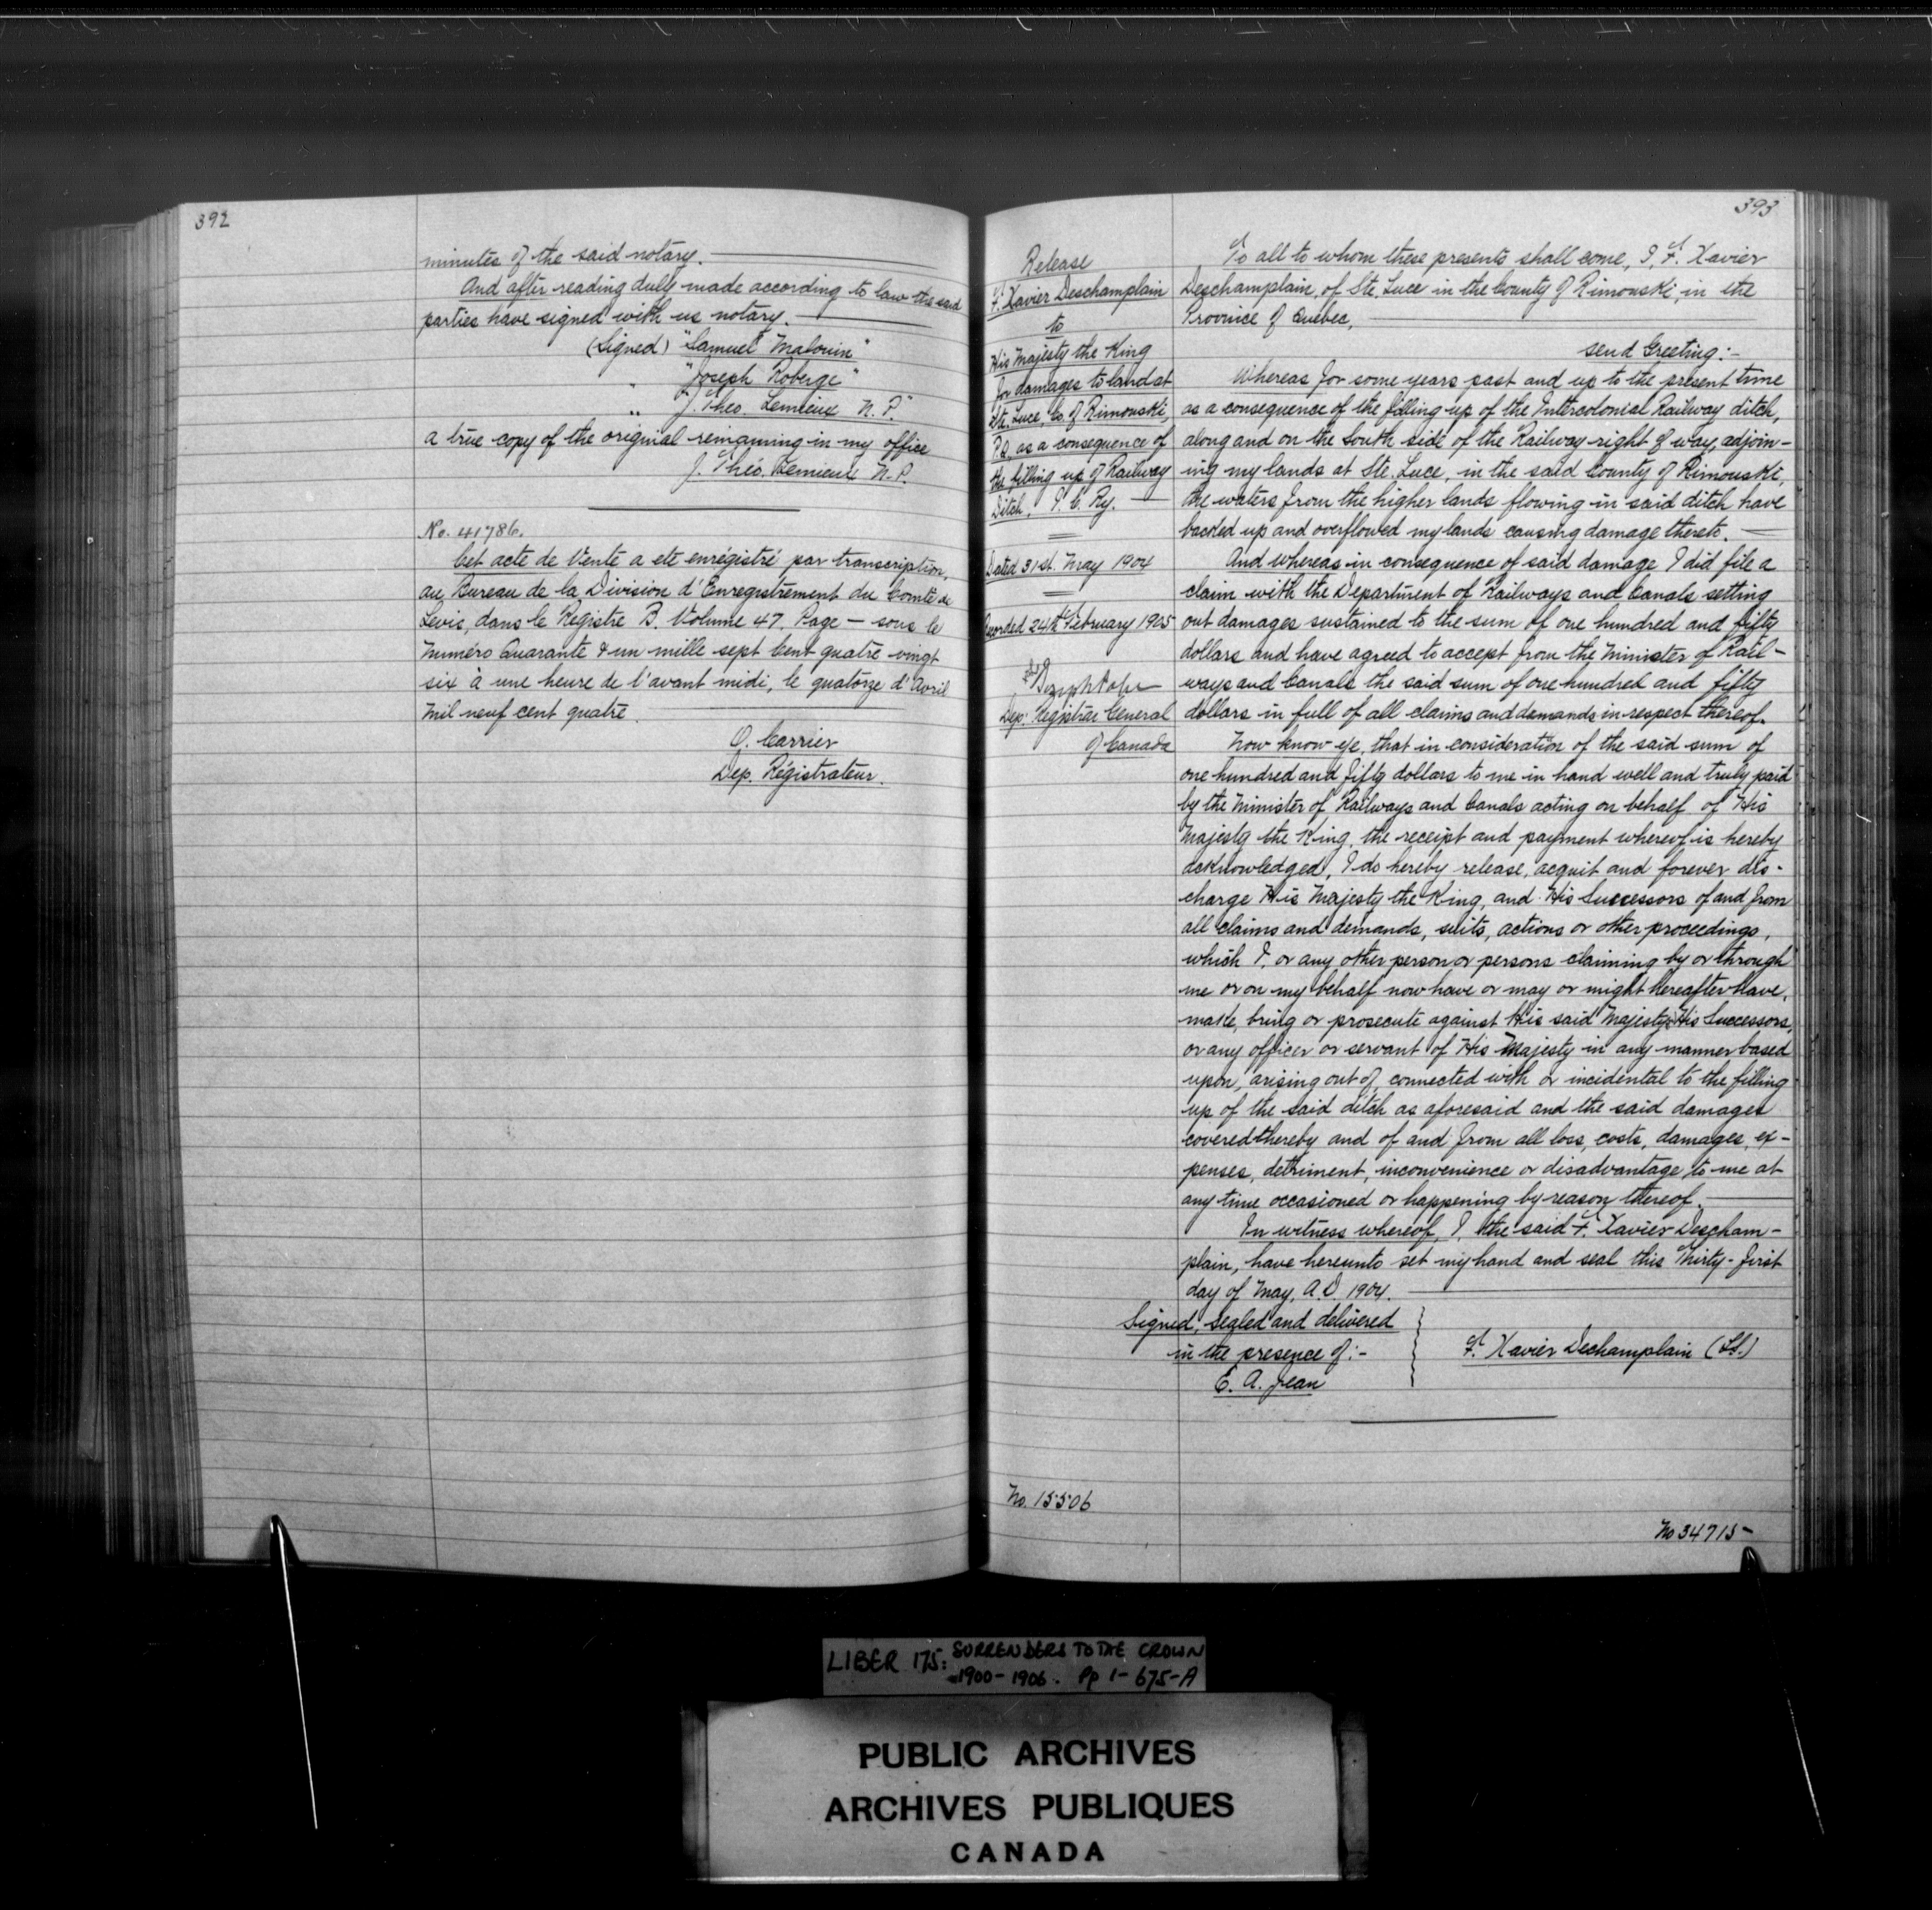 392
minutes of the said notary.
And after reading dully made according to law the said
parties have signed with us notary.
(Signed) "Samuel Malouin"
" "Joseph Roberge"
" "J. Theo. Lemieux N.P."
a true copy of the original remaining in my office
J. Théo. Lemieux N.P.
No. 41786.
Cet acte de Vente a eté enrégistré par transcription,
au Bureau de la Division d'Enregistrement du Comté de
Levis, dans le Registre B. Volume 47. Page — sous le
numéro Quarante & un mille sept Cent quatre vingt
six à une heure de l'avant midi, le quatorze d'Avril
mil neuf cent quatre.
O. Carrier
Dep. Régistrateur.
393
Release
F. Xavier Deschamplain
to
His Majesty the King
for damages to land at
Ste. Luce, Co. of Rimouski,
P.Q. as a consequence of
the filling up of Railway
Ditch, I. C. Ry.
Dated 31st. May 1904
Recorded 24th February 1905
Joseph Pope
Dep: Registrar General
of Canada
To all to whom these presents shall come, I, F. Xavier
Deschamplain, of Ste. Luce in the County of Rimouski, in the
Province of Quebec,
send Greeting:-
Whereas for some years past and up to the present time
as a consequence of the filling up of the Intercolonial Railway ditch,
along and on the South side of the Railway right of way, adjoin-
ing my lands at Ste. Luce, in the said County of Rimouski,
the waters from the higher lands flowing in said ditch have
backed up and overflowed my lands causing damage thereto.
And whereas in consequence of said damage I did file a
claim with the Department of Railways and Canals setting
out damages sustained to the sum of one hundred and fifty
dollars and have agreed to accept from the Minister of Rail-
ways and Canals the said sum of one hundred and fifty
dollars in full of all claims and demands in respect thereof.
Now know ye, that in consideration of the said sum of
one hundred and fifty dollars to me in hand well and truly paid
by the Minister of Railways and Canals acting on behalf of His
Majesty the King, the receipt and payment whereof is hereby
acknowledged, I do hereby release, acquit and forever dis-
charge His Majesty the King, and His Successors of and from
all claims and demands, suits, actions or other proceedings,
which I, or any other person or persons claiming by or through
me or on my behalf now have or may or might hereafter have,
make, bring or prosecute against His said Majesty, His Successors,
or any officer or servant of His Majesty in any manner based
upon, arising out of, connected with or incidental to the filling
up of the said ditch as aforesaid and the said damages
covered thereby and of and from all loss, costs, damages, ex-
penses, detriment, inconvenience or disadvantage to me at
any time occasioned or happening by reason thereof.
In witness whereof, I, the said F. Xavier Descham-
plain, have hereunto set my hand and seal this Thirty-first
day of May, A.D. 1904.
Signed, sealed and delivered
in the presence of:-
E. A. Jean
F. Xavier Dechamplain (LS.)
No. 15506
No 34715-
LIBER 175: SURRENDERS TO THE CROWN
1900-1906. Pp 1-675-A
PUBLIC ARCHIVES
ARCHIVES PUBLIQUES
CANADA